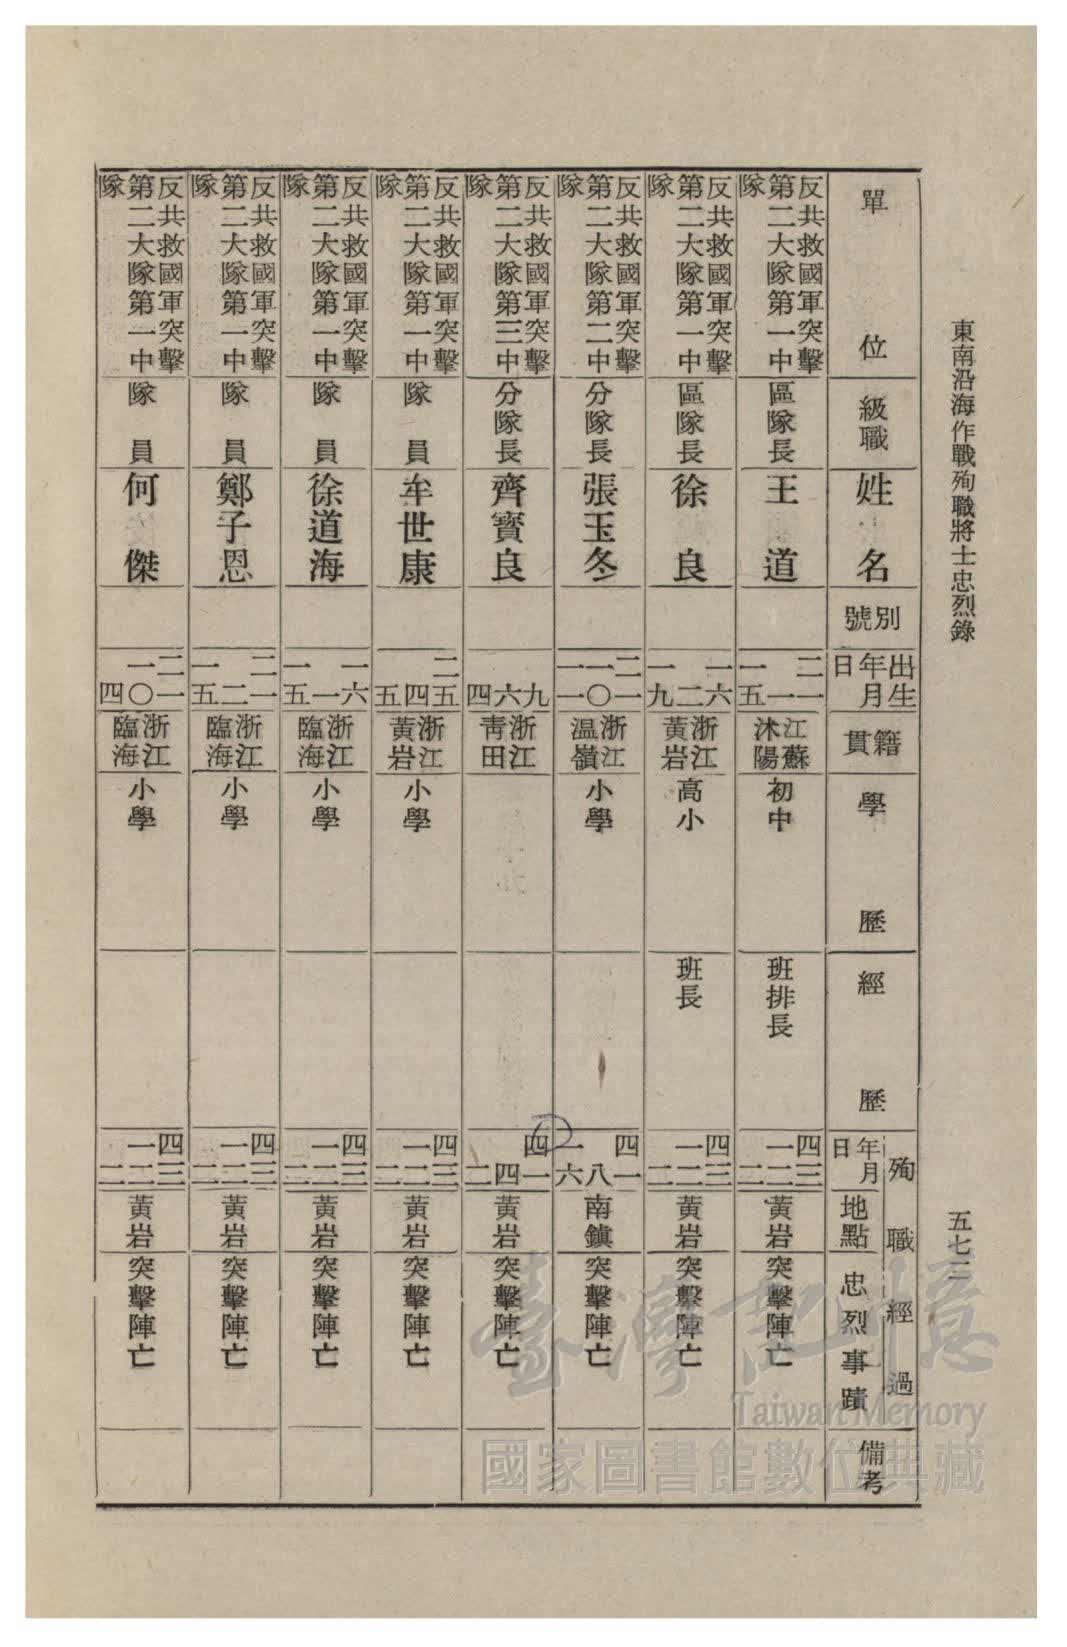 東南沿海作戰殉職將士忠烈錄
五七二
單位
級職
姓名
別號
出生年月日
籍貫
學歷
經歷
殉職經過
年月日
地點
忠烈事蹟
備考
反共救國軍突擊
第二大隊第一中
隊
區隊長
王道
二一
一
一五
江蘇
沭陽
初中
班排長
四三
一二
二
黃岩
突擊陣亡
反共救國軍突擊
第二大隊第一中
隊
區隊長
徐良
一六
二
一九
浙江
黃岩
高小
班長
四三
一二
二
黃岩
突擊陣亡
反共救國軍突擊
第二大隊第二中
隊
分隊長
張玉冬
二一
一〇
一一
浙江
温嶺
小學
四一
八
一六
南鎮
突擊陣亡
反共救國軍突擊
第二大隊第三中
隊
分隊長
齊寶良
九
六
四
浙江
靑田
四一
四
二
黃岩
突擊陣亡
反共救國軍突擊
第二大隊第一中
隊
隊員
牟世康
二五
四
五
浙江
黃岩
小學
四三
一二
二
黃岩
突擊陣亡
反共救國軍突擊
第二大隊第一中
隊
隊員
徐道海
一六
一
一五
浙江
臨海
小學
四三
一二
二
黃岩
突擊陣亡
反共救國軍突擊
第二大隊第一中
隊
隊員
鄭子恩
二一
二
一五
浙江
臨海
小學
四三
一二
二
黃岩
突擊陣亡
反共救國軍突擊
第二大隊第一中
隊
隊員
何傑
二一
一〇
四
浙江
臨海
小學
四三
一二
二
黃岩
突擊陣亡
臺灣記憶
Taiwan Memory
國家圖書館數位典藏